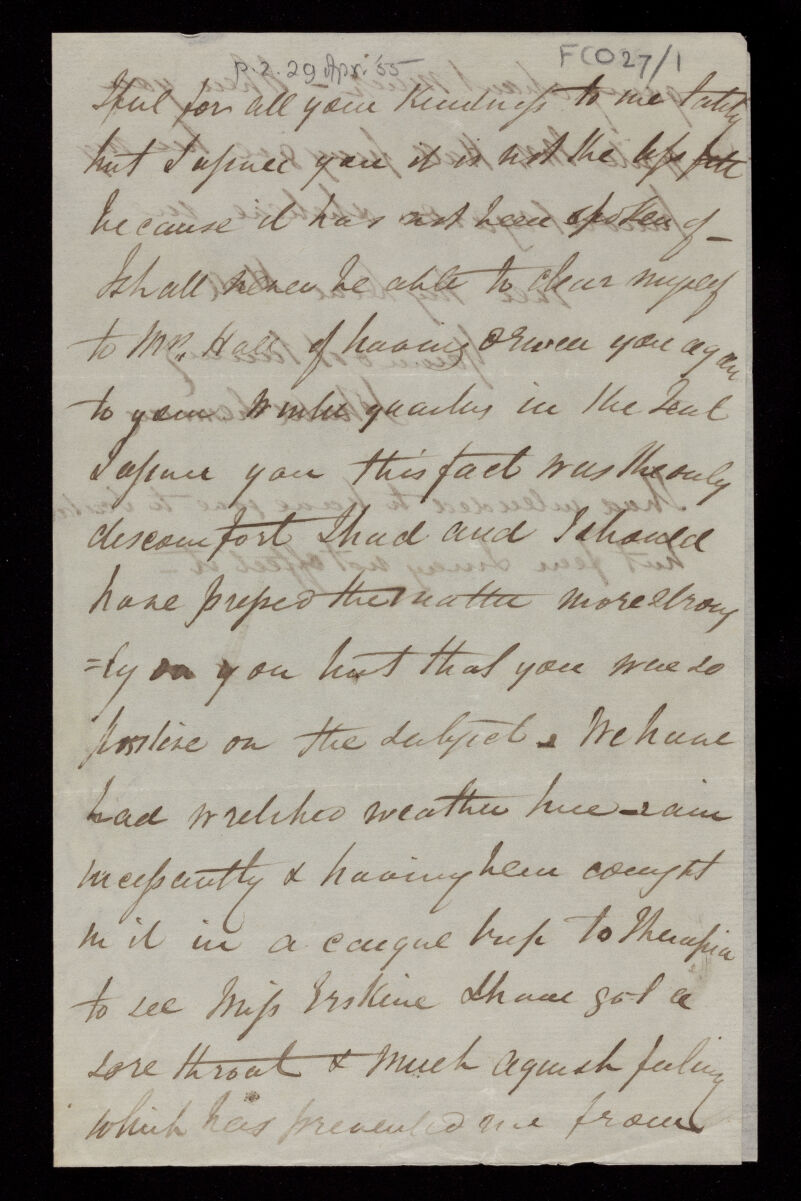 p. 2. 29 Apr. '55
FCO 27/1
I feel for all your Kindness to me lately
but I assure you it is not the less felt
because it has not been spoken of –
I shall never be able to clear myself
to Mrs. Hall of having driven you again
to your Winter quarters in the Tent
I assure you this fact was the only
discomfort I had and I should
have pressed the matter more strong
=ly on you but that you were so
positive on the subject – We have
had wretched weather here – rain
incessantly & having been caught
in it in a caique trip to Therapia
to see Miss Erskine I have got a
sore throat & much aguish feeling
which has prevented me from